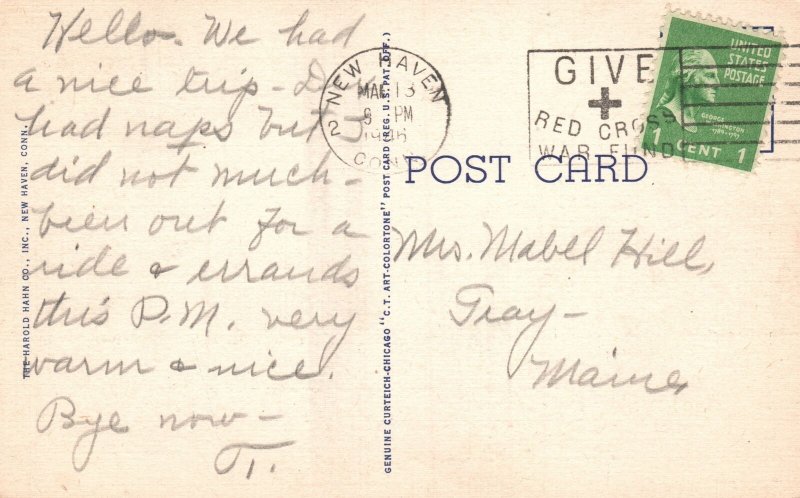 Hello. We had
a nice trip -
had naps but I
did not much -
been out for a
ride & errands
this P.M. very
warm & nice.
Bye now -
T.
THE HAROLD HAHN CO., INC., NEW HAVEN, CONN.
GENUINE CURTEICH-CHICAGO "C.T. ART-COLORTONE" POST CARD (REG. U.S. PAT. OFF.)
NEW HAVEN
MAR 13
PM
1946
CONN.
2
GIVE
RED CROSS
WAR FUND
UNITED
STATES
POSTAGE
GEORGE
WASHINGTON
1789-1797
1 CENT 1
POST CARD
Mrs. Mabel Hill,
Gray -
Maine,